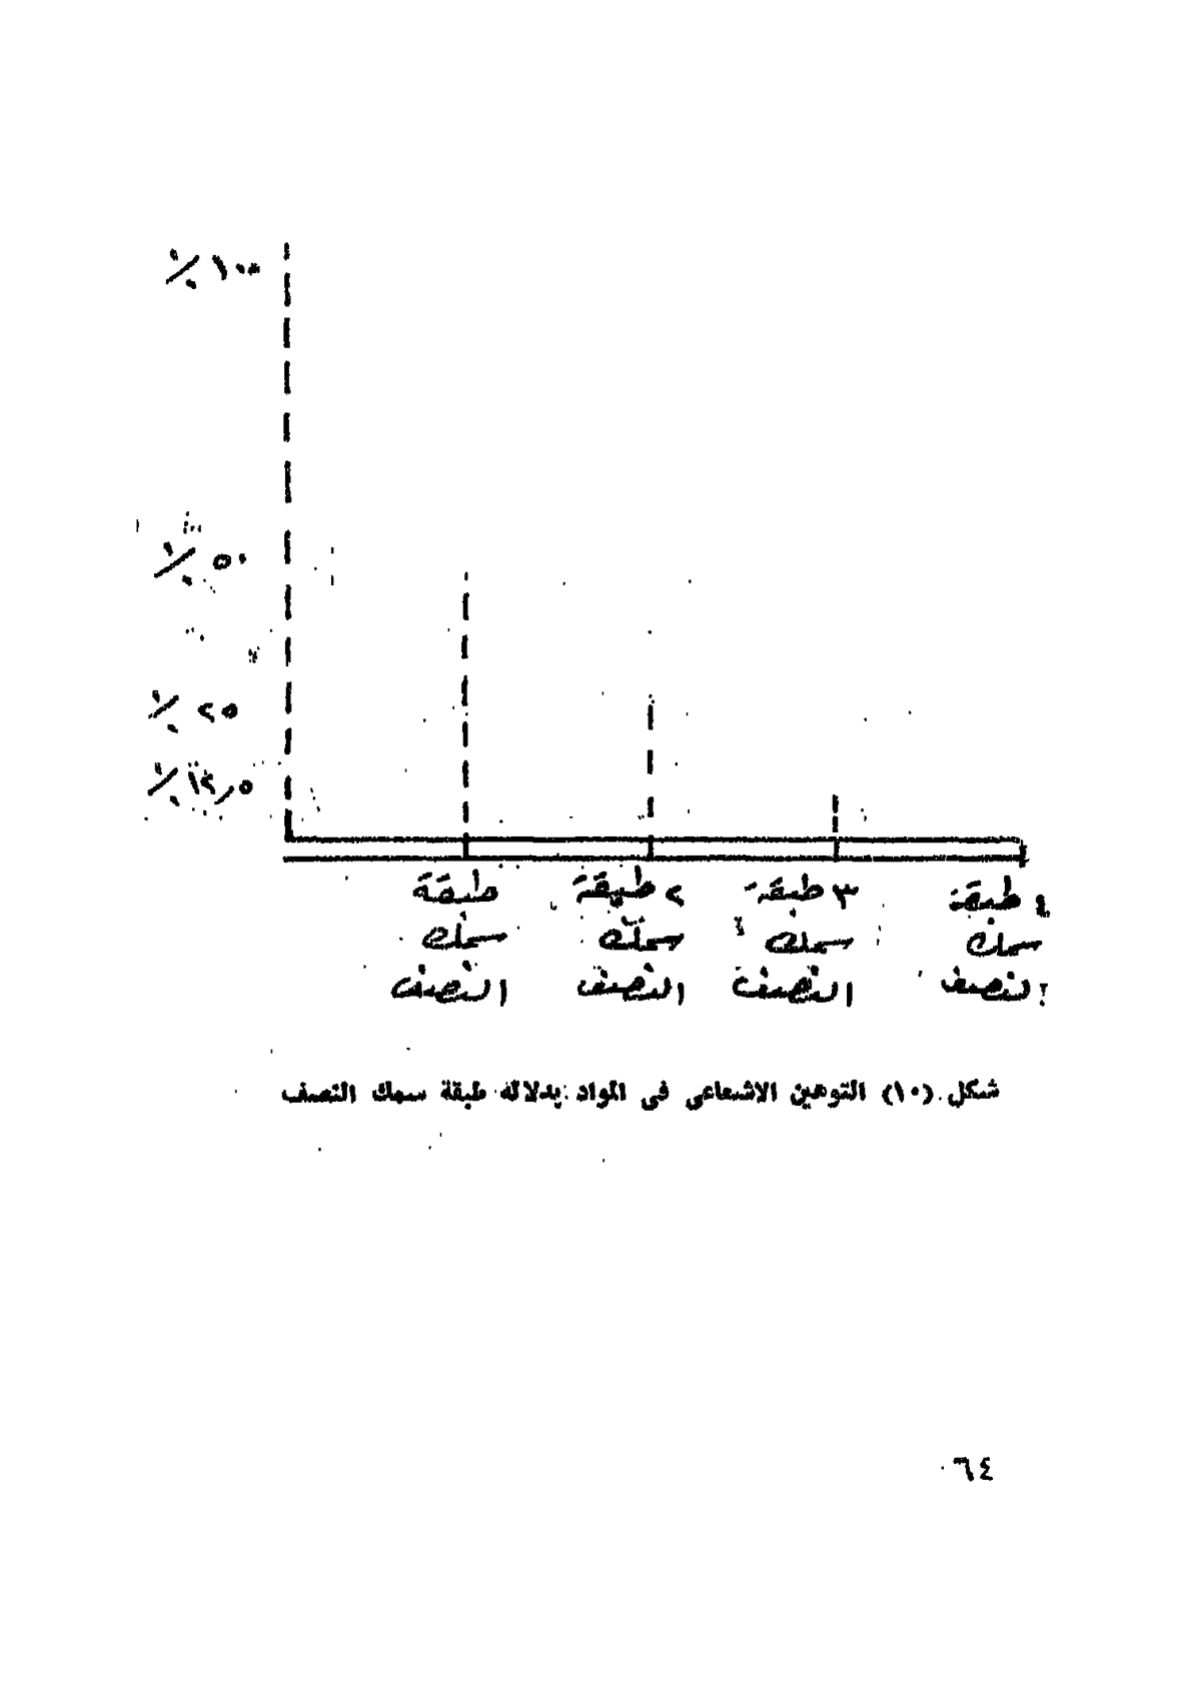 ١٠٠ ٪
٥٠ ٪
٢٥ ٪
١٢٫٥ ٪
طبقة
سمك
النصف
٢ طبقة
سمك
النصف
٣ طبقة
سمك
النصف
٤ طبقة
سمك
النصف
شكل (١٠) التوهين الاشعاعى فى المواد بدلاله طبقة سمك النصف
٦٤